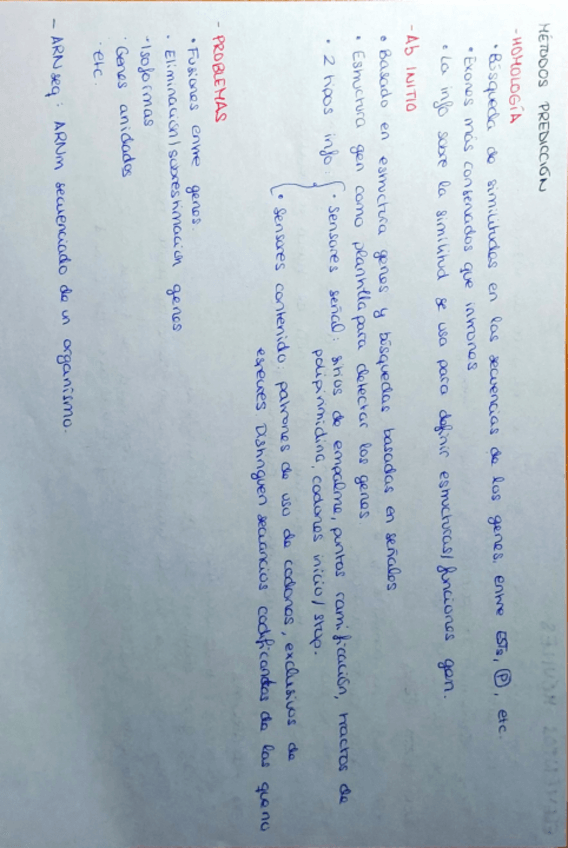 MÉTODOS PREDICCIÓN
- HOMOLOGÍA
• Búsqueda de similitudes en las secuencias de los genes, entre ESTs, Ⓟ, etc.
• Exones más conservados que intrones
• La info sobre la similitud se usa para definir estructuras/funciones gen.
- Ab INITIO
• Basado en estructura genes y búsquedas basadas en señales
• Estructura gen como plantilla para detectar los genes
• 2 tipos info: { • sensores señal: sitios de empalme, puntos ramificación, tractos de
polipirimidina, codones inicio/stop.
{ • sensores contenido: patrones de uso de codones, exclusivos de
especies Distinguen secuencias codificantes de las que no
- PROBLEMAS
• Fusiones entre genes.
• Eliminación/sobreestimación genes
• Isoformas
• Genes anidados
• etc.
- ARNseq: ARNm secuenciado de un organismo.